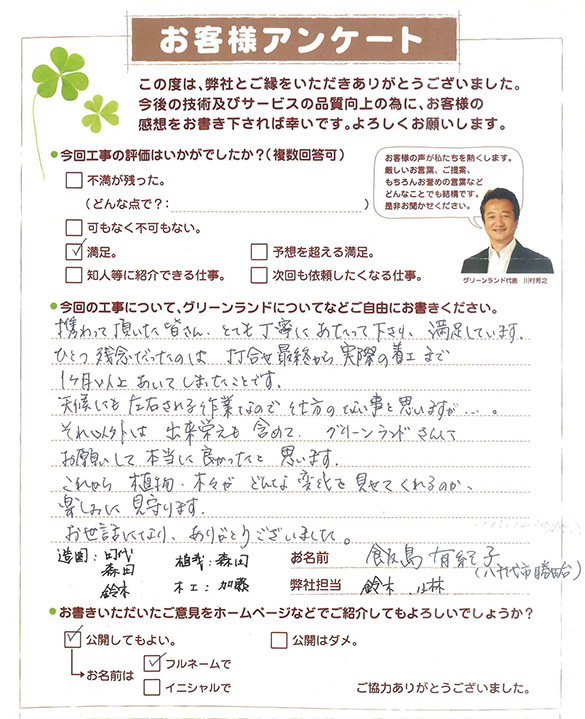 お客様アンケート
この度は、弊社とご縁をいただきありがとうございました。
今後の技術及びサービスの品質向上の為に、お客様の
感想をお書き下されば幸いです。よろしくお願いします。
●今回工事の評価はいかがでしたか?(複数回答可)
不満が残った。
(どんな点で?: )
可もなく不可もない。
満足。
予想を超える満足。
知人等に紹介できる仕事。
次回も依頼したくなる仕事。
お客様の声が私たちを熱くします。
厳しいお言葉、ご提案、
もちろんお誉めの言葉など
どんなことでも結構です。
是非お聞かせください。
グリーンランド代表 川村秀之
●今回の工事について、グリーンランドについてなどご自由にお書きください。
携わって頂いた皆さん、とても丁寧にあたって下さり、満足しています。
ひとつ残念だったのは 打合せ最終から実際の着工まで
1ヶ月以上あいてしまったことです。
天候にも左右される作業なので仕方のない事と思いますが…。
それ以外は 出来栄えも含めて、グリーンランドさんに
お願いして本当に良かったと思います。
これから 植物・木々が どんな変化を見せてくれるのか、
楽しみに見守ります。
お世話になり、ありがとうございました。
造園:田代
森田
鈴木
植栽:森田
木工:加藤
お名前 飯島 有紀子
(八千代市勝田台)
弊社担当 鈴木 小林
●お書きいただいたご意見をホームページなどでご紹介してもよろしいでしょうか?
公開してもよい。
公開はダメ。
お名前は
フルネームで
イニシャルで
ご協力ありがとうございました。